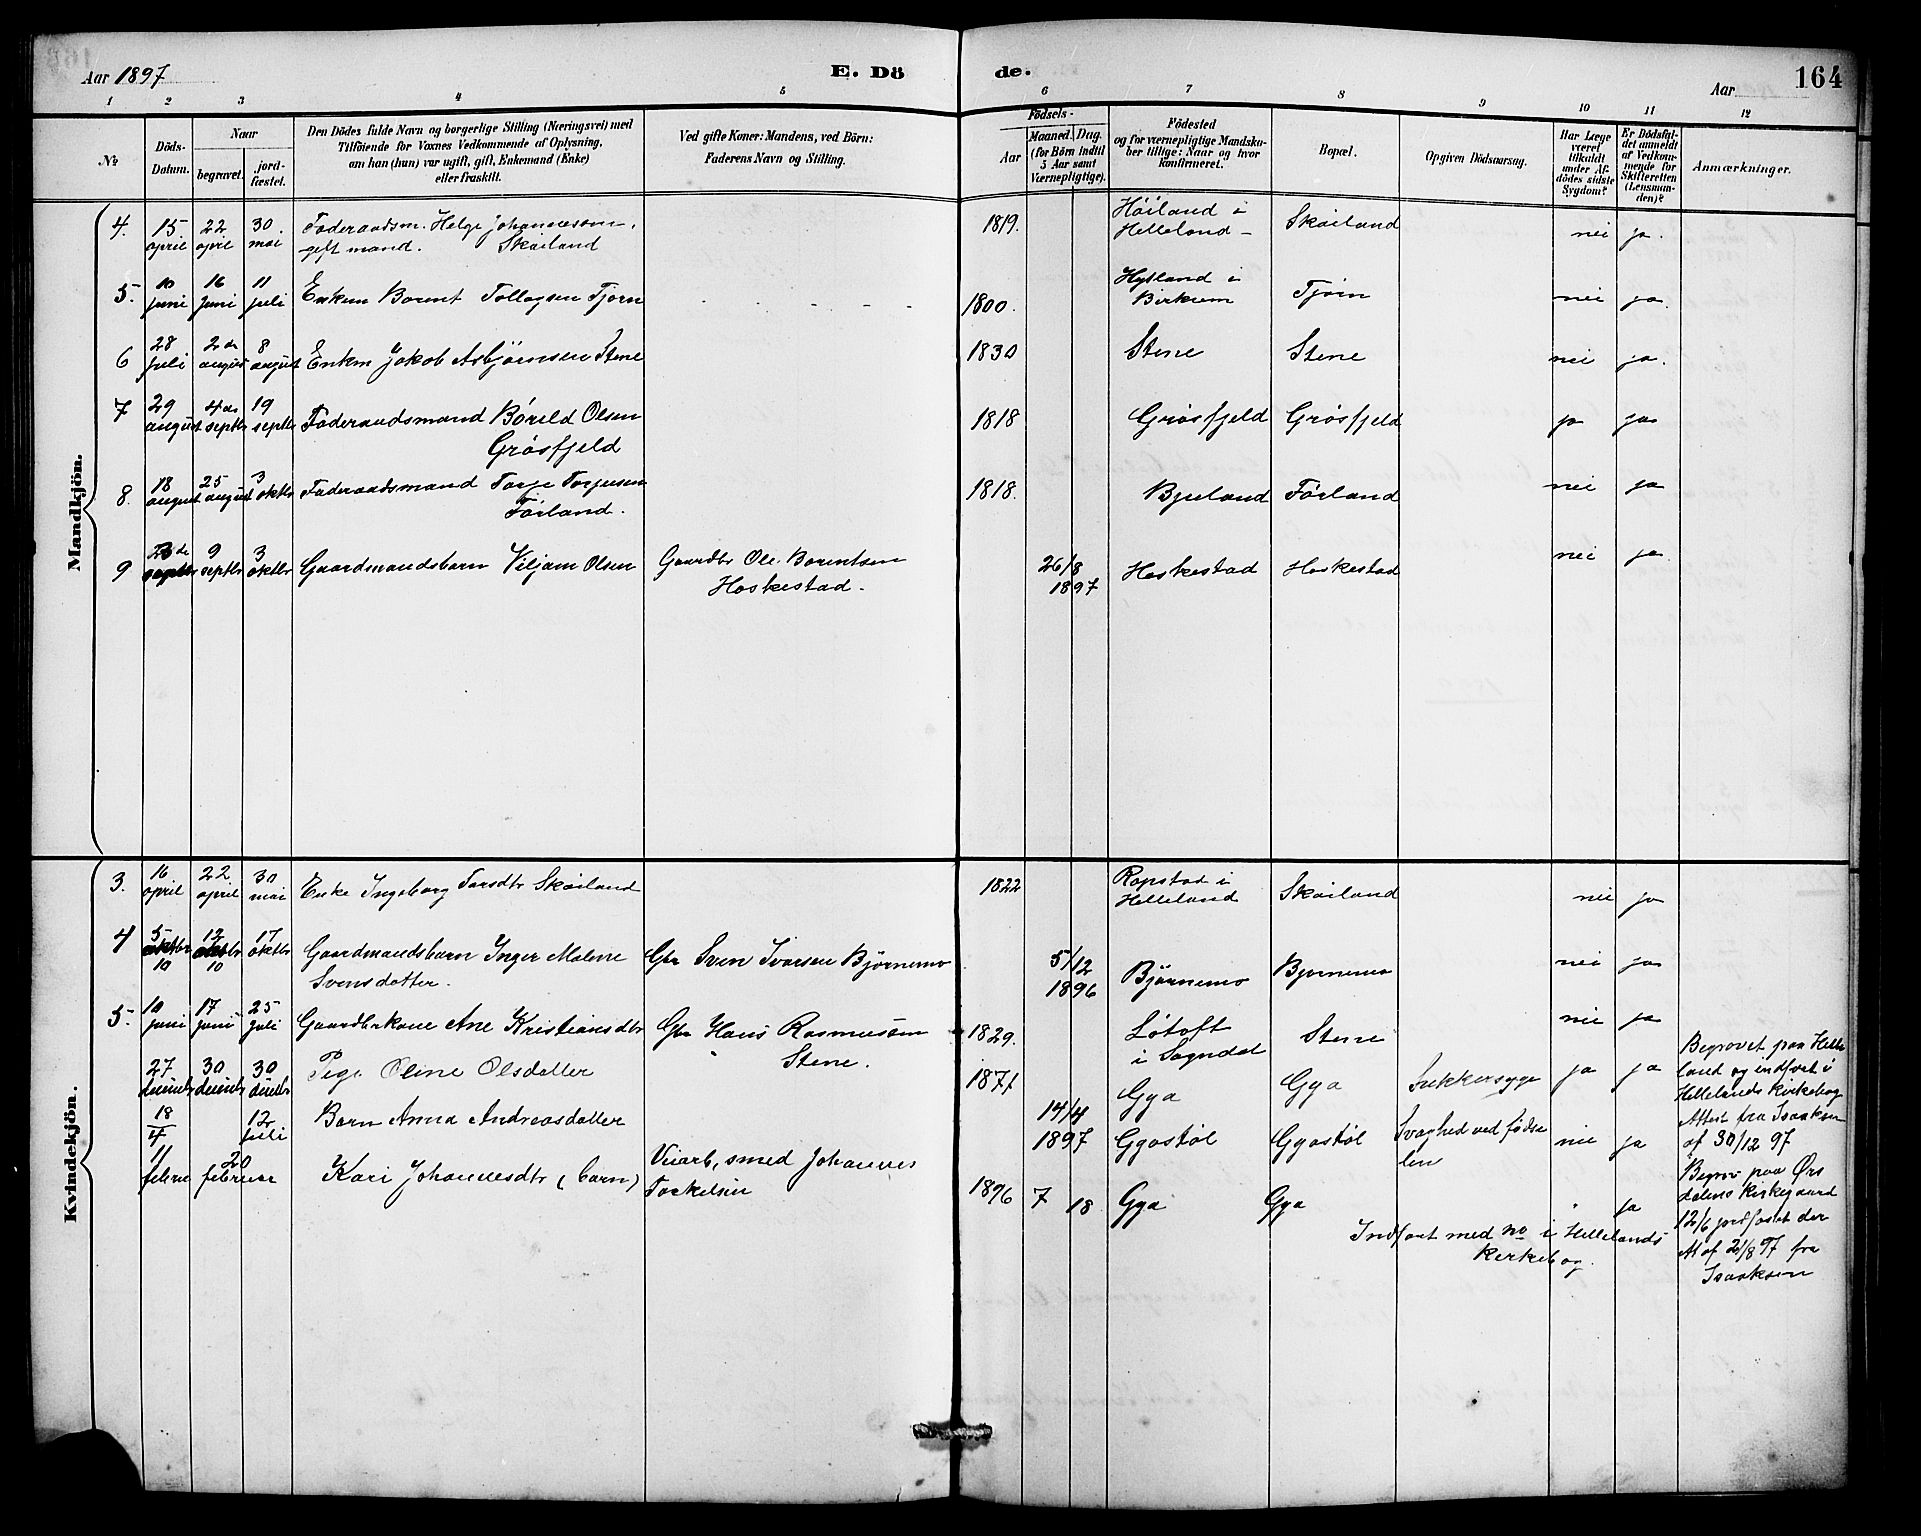 Aar 1897
E. Dö
de.
Aar
164
1 2 3 4 5 6 7 8 9 10 11 12
No
Döds-
Datum.
Naar
begravet.
jord-
fæstet.
Den Dödes fulde Navn og borgerlige Stilling (Næringsvei) med
Tilföiende for Voxnes Vedkommende af Oplysning,
om han (hun) var ugift, gift, Enkemand (Enke)
eller fraskilt.
Ved gifte Koner: Mandens, ved Börn:
Faderens Navn og Stilling.
Födsels-
Aar
Maaned. Dag.
(for Börn indtil
5 Aar samt
Værnepligtige).
Födested
og for værnepligtige Mandska-
ber tillige: Naar og hvor
konfirmeret.
Bopæl.
Opgiven Dödsaarsag.
Har Læge
været
tilkaldt
under Af-
dödes sidste
Sygdom?
Er Dödsfal-
det anmeldt
af Vedkom-
mende for
Skifteretten
(Lensman-
den)?
Anmærkninger.
Mandkjön.
4. 15. april 22 april 30. mai Föderaadsm. Helge Johannessen. 1819. Höiland i Skåiland nei ja.
gift mand. Skåiland Helleland –
5. 10 juni 16 juni 11 juli Enkem Borent Tollagsen Tjörn 1800. Hytland i Tjörn nei ja.
Birkrem
6 28 juli 2den august 8 august Enkm Jakob Asbjörnsen Stene 1830 Stene Stene nei ja.
7 29 august 4de septbr 19 septbr Föderaadsmand Bóreld Olsen 1818 Grösfjeld Grösfjeld ja ja
Grösfjeld
8. 18 august 25 august 3 oktbr Föderaadsmand Torge Torgersen 1818. Bjuland Förland nei ja
Förland.
9 septbr 9 septbr 3 oktbr Gaardmandsbarn Viljam Olsen Gaardbr Ole Borentsen 26/8 Heskestad Heskestad nei ja
Heskestad. 1897
Kvindekjön.
3. 16 april 22 april 30 mai Enke Ingeborg Tarsdtr Skåiland 1822 Ropstad i Skåiland nei ja
Helleland
4 5 10 12 10 17 oktbr Gaardmandsbarn Inger Malene Gbr Sven Ivarsen Björnemo 5/12 Björnemo Bjørnemo nei ja
Svensdatter. 1896
5. 10 juni 17 juni 25 juli Gaardbrkone Ane Kristiansdtr Gbr Hans Rasmussen 1829. Løtoft Stene nei ja
Stene. i Sogndal
27 30 30 Pige Oline Olsdatter 1871 Gya Gya Sukkersyge ja ja
Begravet paa Helle
land og indført i
Hellelands Kirkebog
Attest fra Isaaksen
af 30/12 97
18/4 12 juli Barn Anna Andreasdatter 14/4 1897 Gyastøl Gyastøl Svaghed ved fødse nei ja
len
11 20 februar Kari Johannesdtr (barn) Veiarb, smed Johannes 1896 7 18 Gya Gya " ja
Torkelsen
Begrav paa Ørs
dalens Kirkegaard
12/6 jordfæstet der
At af 21/8 97 fra
Isaaksen
Indført med no i Hellelands
Kirkebog.